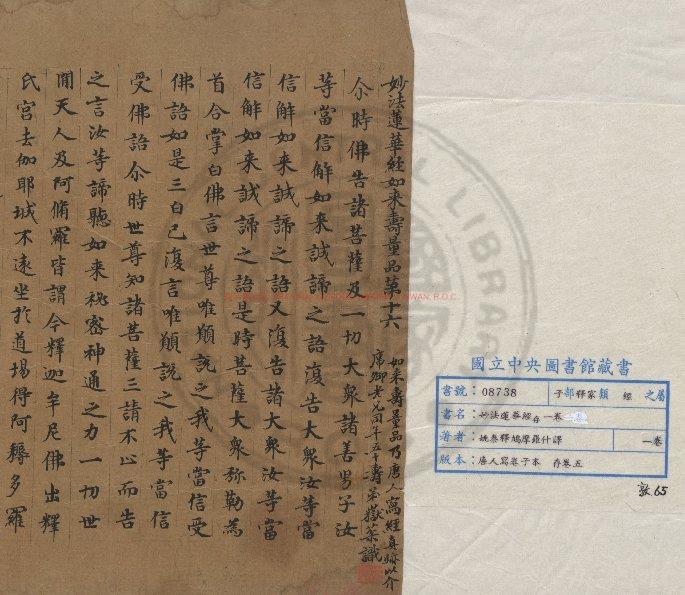 妙法蓮華經如来壽量品第十六
如来壽量品乃唐人寫經真跡以介
席卿老兄四十五十壽弟嶽棻識
尒時佛告諸菩薩及一切大衆諸善男子汝
等當信解如来誠諦之語復告大衆汝等當
信解如来誠諦之語又復告諸大衆汝等當
信解如来誠諦之語是時菩薩大衆弥勒為
首合掌白佛言世尊唯願說之我等當信受
佛語如是三白已復言唯願說之我等當信
受佛語尒時世尊知諸菩薩三請不止而告
之言汝等諦聽如来秘密神通之力一切世
間天人及阿脩羅皆謂今釋迦牟尼佛出釋
氏宮去伽耶城不遠坐於道場得阿耨多羅
國立中央圖書館藏書
書號：08738 子部釋家類 經 之屬
書名：妙法蓮華經存一卷
著者：姚秦釋鳩摩羅什譯 一卷
版本：唐人寫卷子本 存卷五
敦65